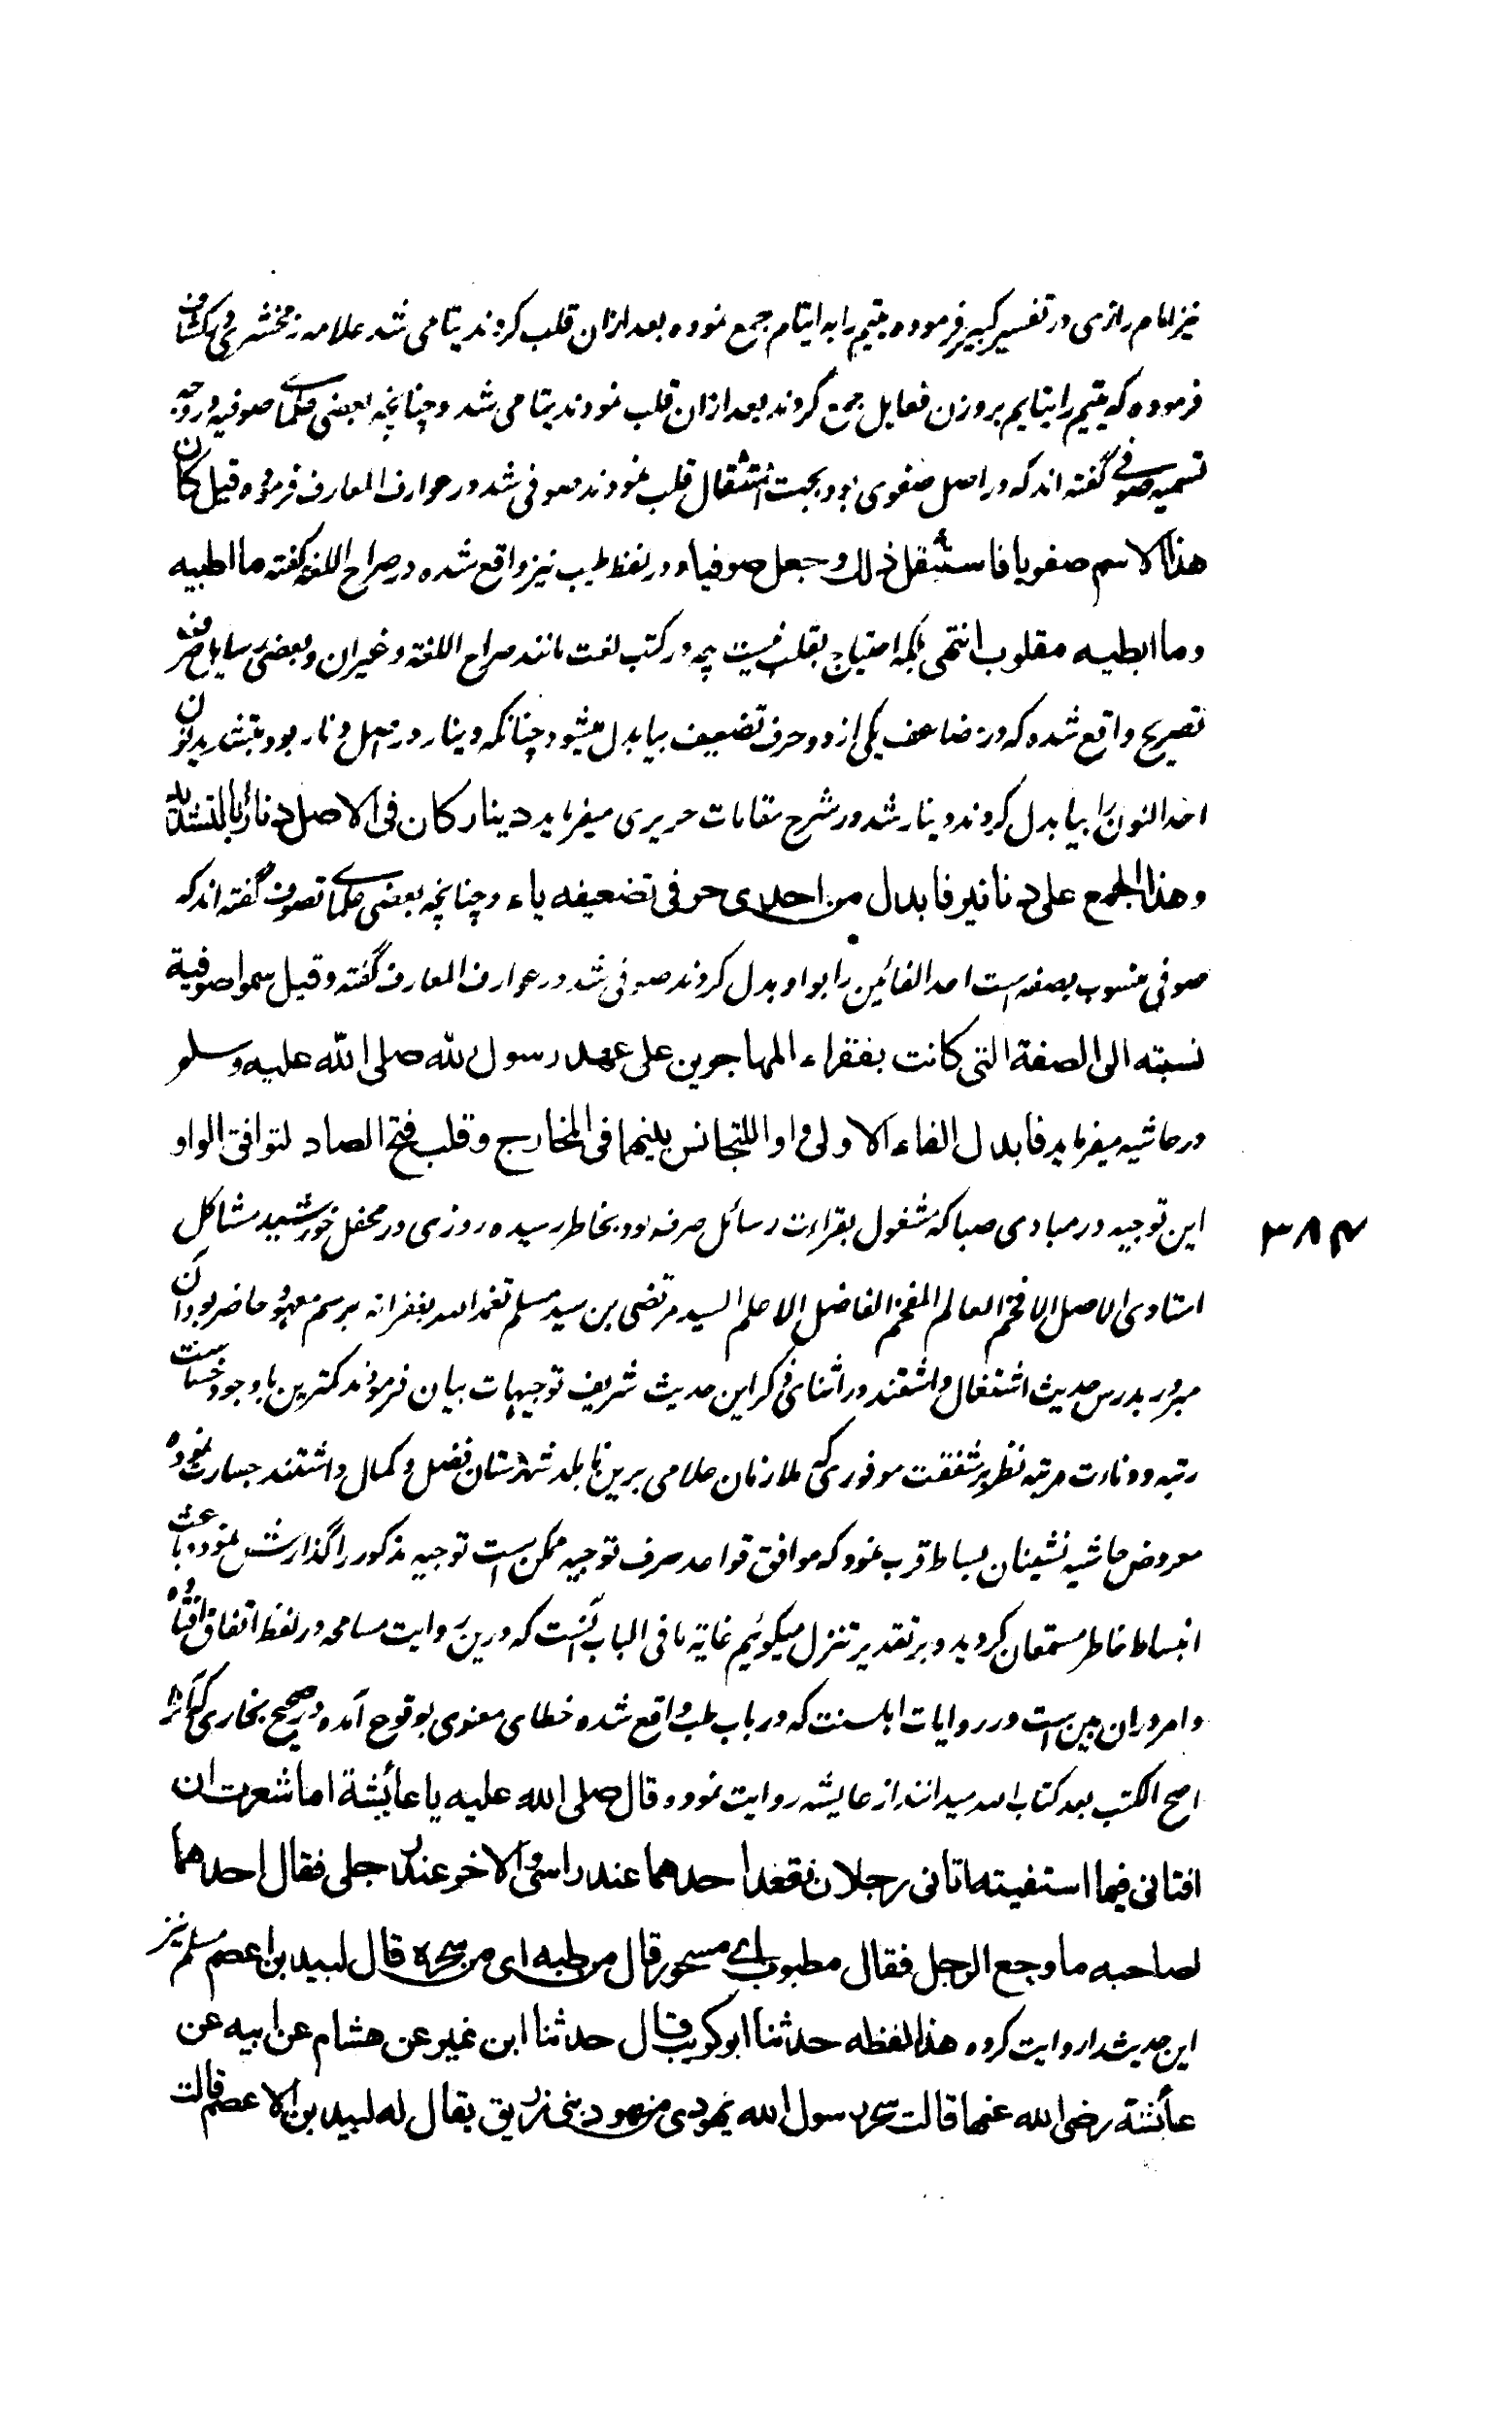 نیز امام رازی در تفسیر کبیر فرموده یتیم را به ایتام جمع نموده بعد ازان قلب کردند یتامی شد علامه زمخشری در کشاف
فرموده که یتیم را یتایم بر وزن فعایل جمع کردند بعد ازان قلب نمودند یتامی شد و چنانچه بعضی علمای صوفیه در وجه
تسمیه صوفی گفته اند که در اصل صفوی بود بجهت استثقال قلب نمودند صوفی شد در عوارف المعارف فرموده قیل کان
هذا الاسم صفویا فاستثقل ذلک و جعل صوفیا و در لفظ طیب نیز واقع شده در صراح اللغه گفته ما اطیبه
و ما ایطبه مقلوب انتهی بلکه احتیاج بقلب نیست چه در کتب لغت مانند صراح اللغة و غیران و بعضی رسایل صرف
تصریح واقع شده که در مضاعف یکی از دو حرف تضعیف بیا بدل میشود چنانکه دینار در اصل دنار بود بتشدید نون
احد النون را بیا بدل کردند دینار شد در شرح مقامات حریری میفرماید دینار کان فی الاصل دنار بالتشدید
و هذا الجمع علی دنانیر فابدل من احدی حرفی تضعیفه یاء و چنانچه بعضی علمای تصوف گفته اند که
صوفی منسوب بصفه است احد الفائین را بواو بدل کردند صوفی شد در عوارف المعارف گفته و قیل سموا صوفیة
نسبته الی الصفة التی کانت بفقراء المهاجرین علی عهد رسول الله صلی الله علیه وسلم
در حاشیه میفرماید فابدل الفاء الاولی واوا للتجانس بینهما فی المخارج و قلب فتح الصاد لتوافق الواو
این توجیه در مبادی صبا که مشغول بقراءت رسائل صرفه بود بخاطر رسیده روزی در محفل خورشید مشاکل
۳۸۴
استادی الاصل الافخم العالم المفخم الفاضل الاعلم السید مرتضی بن سید مسلم تغمد الله بغفرانه برسم معهود حاضر بود آن
مبرور بدرس حدیث اشتغال داشتند در اثنای ذکر این حدیث شریف توجیهات بیان فرمودند کمترین باوجود خساست
رتبه و دناءت مرتبه نظر بر شفقت موفوری که ملازمان علامی برین نابلد شهرستان فضل و کمال داشتند جسارت نموده
معروض حاشیه نشینان بساط قرب نمود که موافق قواعد صرف توجیه ممکن است توجیه مذکور را گذارش نموده باعث
انبساط خاطر مستمعان گردید و بر تقدیر تنزل میگوئیم غایة ما فی الباب آنست که درین روایت مسامحه در لفظ اتفاق افتاده
و امر دران هین است و در روایات اهلسنت که در باب طب واقع شده خطای معنوی بوقوع آمده در صحیح بخاری که آنرا
اصح الکتب بعد کتاب الله میدانند از عایشه روایت نموده قال صلی الله علیه یا عائشة اما شعرت ان
افتانی فیما استفیته اتانی رجلان فقعد احدهما عند راسی و الاخر عند رجلی فقال احدهما
لصاحبه ما وجع الرجل فقال مطبوب ای مسحور قال من طبه ای من سحره قال لبید بن اعصم مسلم نیز
این حدیث را روایت کرده هذا لفظه حدثنا ابو کریب قال حدثنا ابن نمیر عن هشام عن ابیه عن
عائشة رضی الله عنها قالت سحر رسول الله یهودی من یهود بنی زریق یقال له لبید بن الاعصم قالت